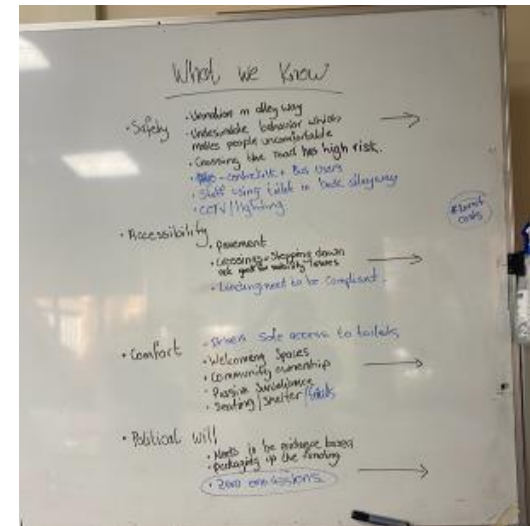 What we Know
• Safety
• Urination in alley way
• Undesirable behavior which
makes people uncomfortable
• Crossing the road has high risk.
Bus Users
• Staff using toilet in back alleyway
• CCTV/lighting
• Accessibility
• pavement
• Crossings - Stepping down
mobility issues
need to be Compliant.
costs
• Comfort
• Drivers Safe access to toilets
• Welcoming Spaces
• Community ownership
• Passive Surveillance
• Seating/shelter/
• Political will
• Needs to be evidence based
• packaging up the funding
• Zero emissions